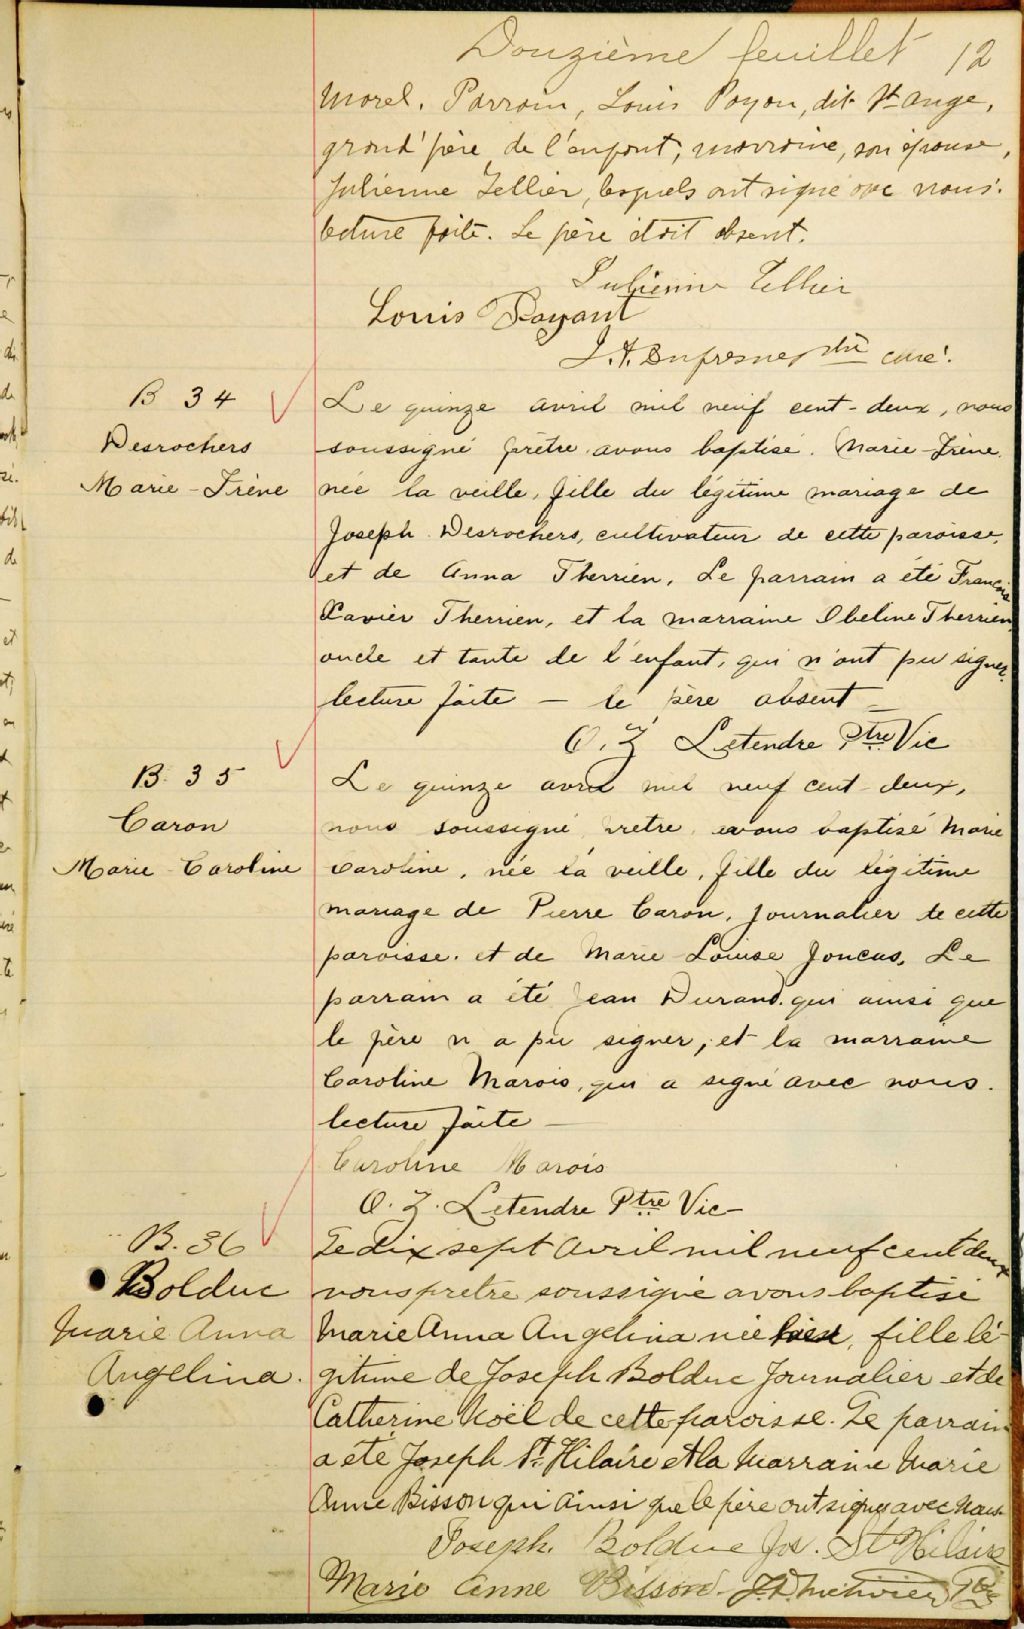 Douzième feuillet 12
Morel. Parrain, Louis Payan, dit St ange,
grand'père de l'enfant, marraine, son épouse,
Julienne Tellier, lesquels ont signé avec nous.
lecture faite. Le père était absent.
Julienne Tellier
Louis Payant
J.A. Dufresne, ptre curé.
B 34
Desrochers
Marie-Irène
Le quinze avril mil neuf cent-deux, nous
soussigné prêtre avons baptisé. Marie-Irène.
née la veille, fille du légitime mariage de
Joseph Desrochers, cultivateur de cette paroisse,
et de Anna Therrien. Le parrain a été François
Xavier Therrien, et la marraine Obeline Therrien,
oncle et tante de l'enfant, qui n'ont pu signer.
lecture faite — le père absent —
O. Z Letendre Ptre Vic
B. 35
Caron
Marie Caroline
Le quinze avril mil neuf cent-deux,
nous soussigné, prêtre, avons baptisé Marie
Caroline, née la veille, fille du légitime
mariage de Pierre Caron, journalier de cette
paroisse. et de Marie Louise Joncas. Le
parrain a été Jean Durand. qui ainsi que
le père n'a pu signer, et la marraine
Caroline Marois, qui a signé avec nous.
lecture faite —
Caroline Marois
O. Z. Letendre Ptre Vic—
B. 36
Bolduc
Marie Anna
Angelina.
Le dix sept Avril mil neuf cent deux
nous pretre soussigné avons baptisé
Marie Anna Angelina née hier, fille lé-
gitime de Joseph Bolduc Journalier et de
Catherine Noël de cette paroisse. Le parrain
a été Joseph St. Hilaire et la Marraine Marie
Anne Bisson qui ainsi que le père ont signé avec Nous
Joseph. Bolduc Jos. St Hilaire
Marie Anne Bisson